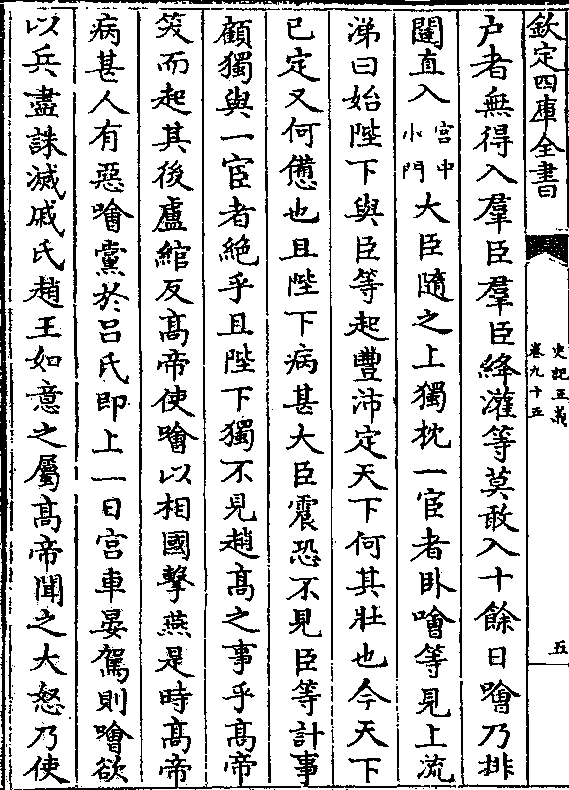 欽定四庫全書
史記正義
卷九十五
五
户者無得入羣臣羣臣絳灌等莫敢入十餘日噲乃排
闥直入宫中小門大臣隨之上獨枕一宦者卧噲等見上流
涕曰始陛下與臣等起豐沛定天下何其壯也今天下
已定又何憊也且陛下病甚大臣震恐不見臣等計事
顧獨與一宦者絶乎且陛下獨不見趙髙之事乎髙帝
笑而起其後盧綰反髙帝使噲以相國擊燕是時髙帝
病甚人有惡噲黨於吕氏即上一日宫車晏駕則噲欲
以兵盡誅滅戚氏趙王如意之屬髙帝聞之大怒乃使